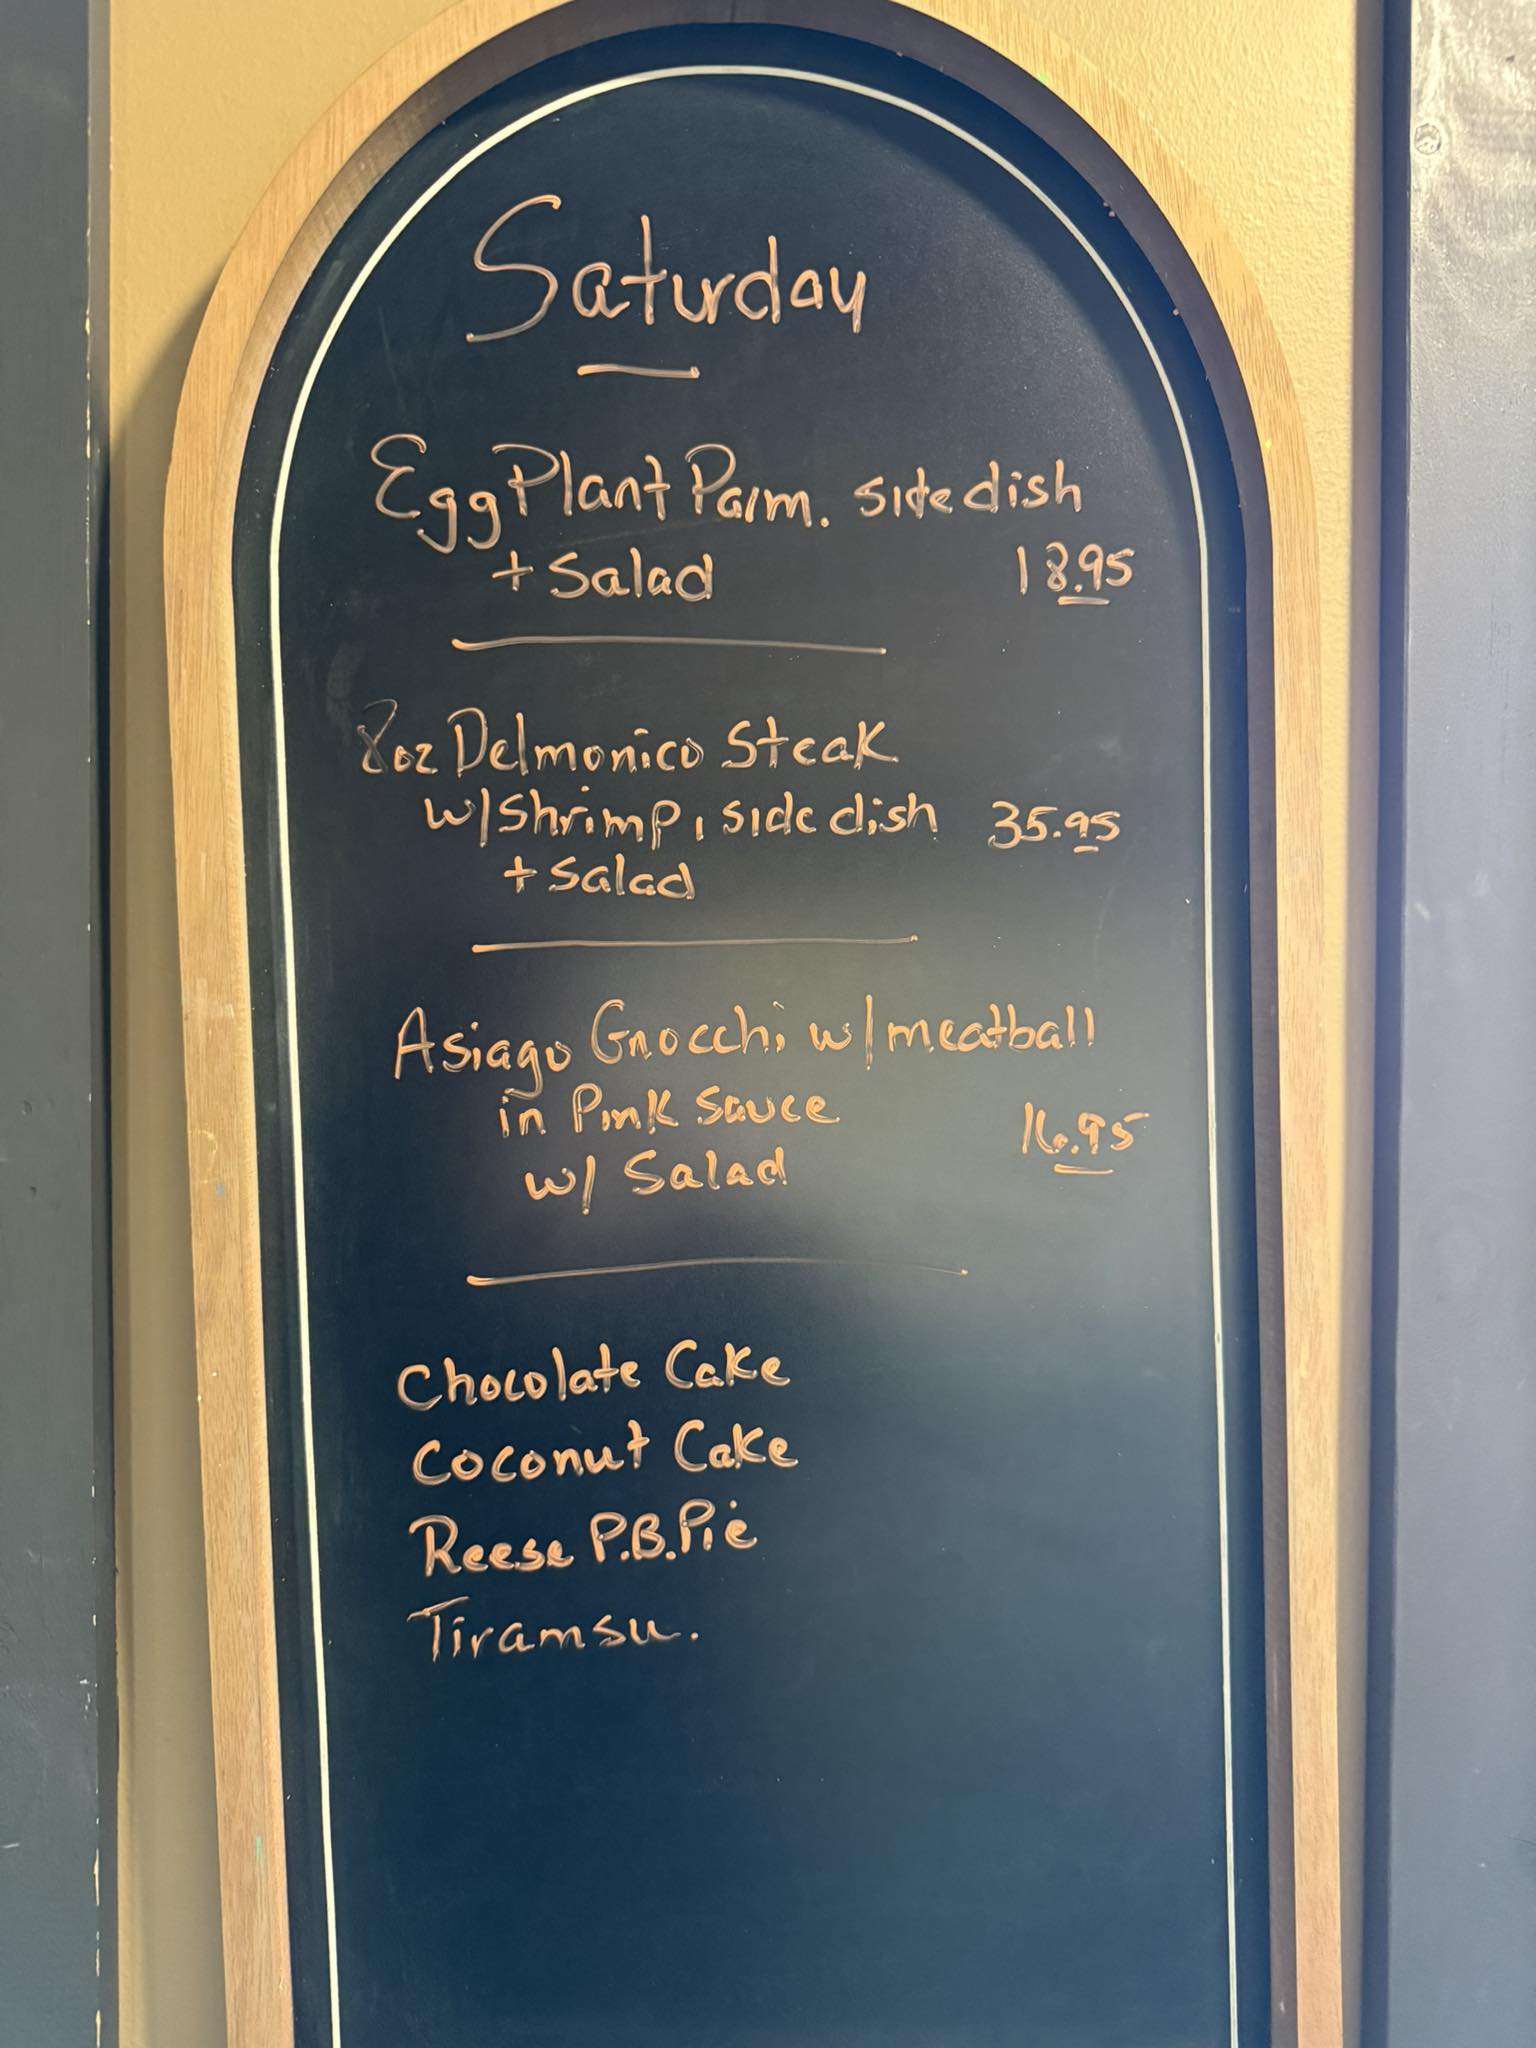 Saturday
Egg Plant Parm. side dish
+ Salad 18.95
8oz Delmonico Steak
w/ Shrimp, side dish 35.95
+ Salad
Asiago Gnocchi w/ meatball
in Pink Sauce 16.95
w/ Salad
Chocolate Cake
Coconut Cake
Reese P.B. Pie
Tiramsu.